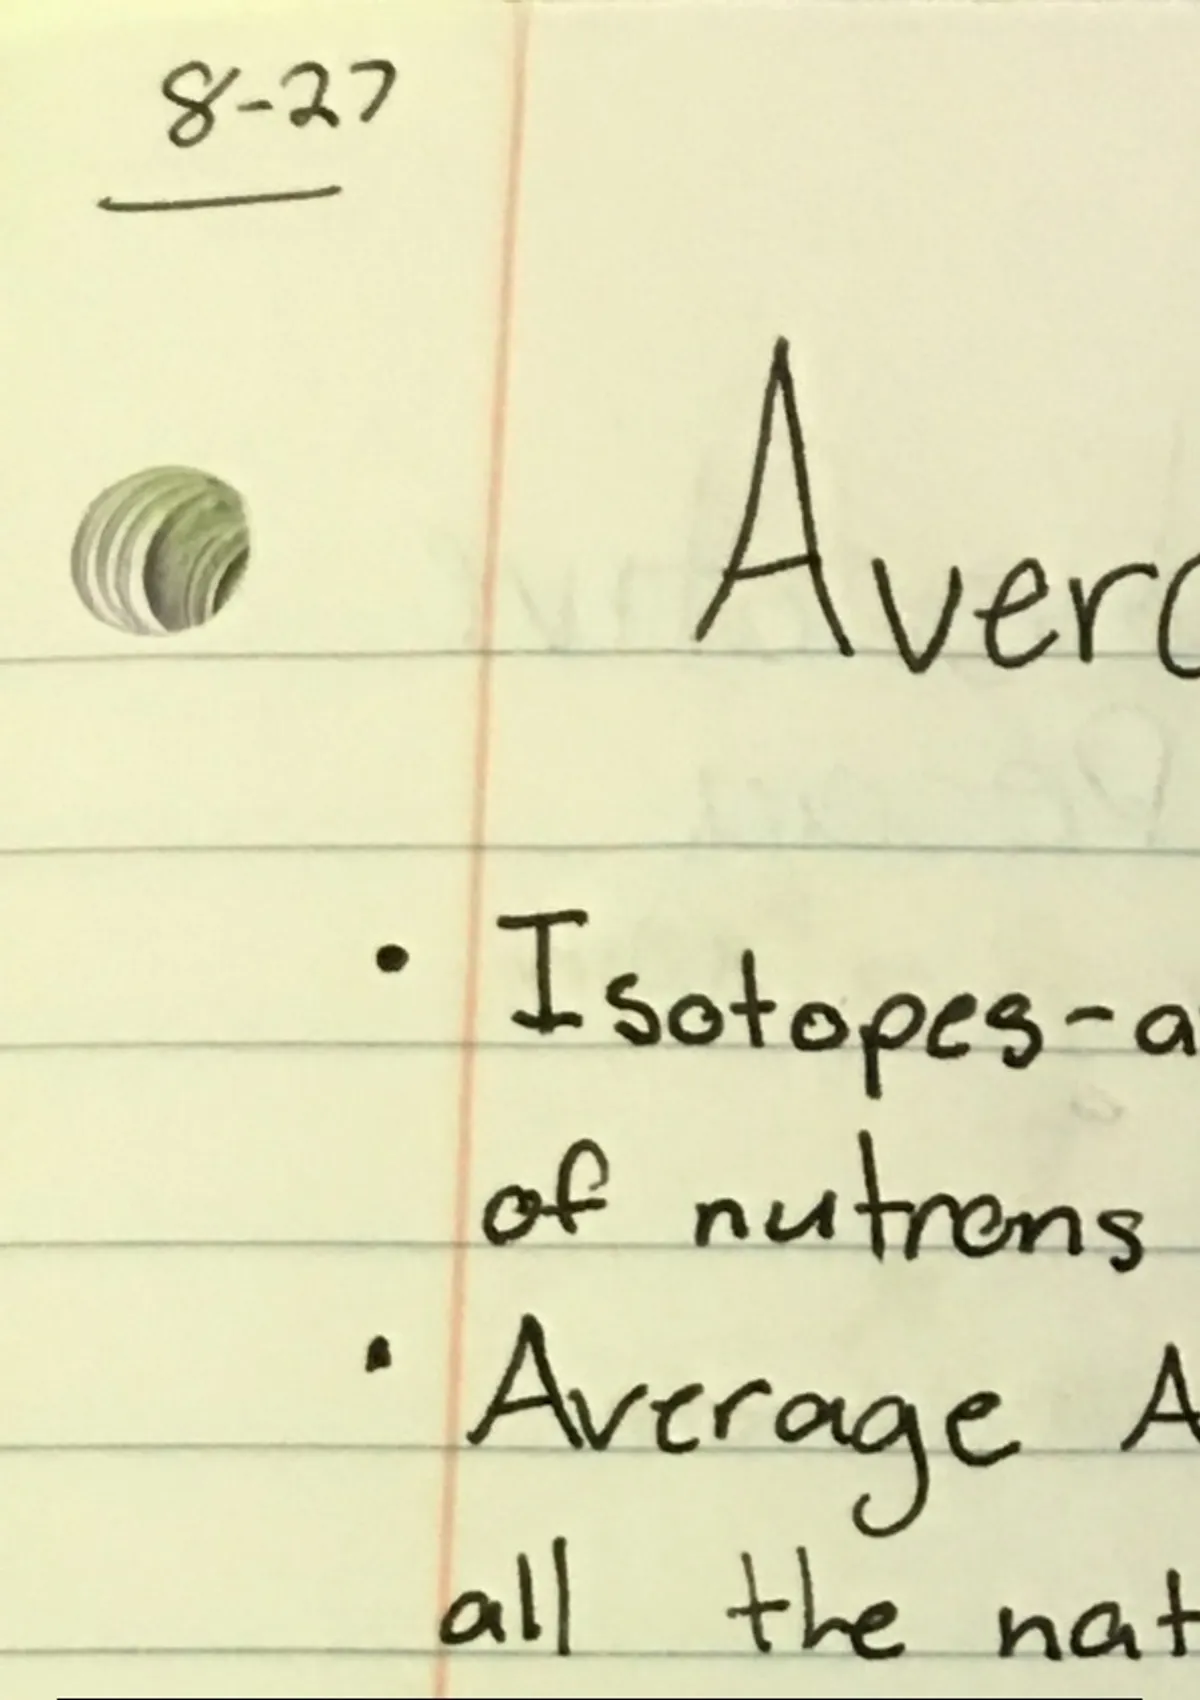 8-27
Avera
• Isotopes-a
of nutrons
• Average A
all the nat